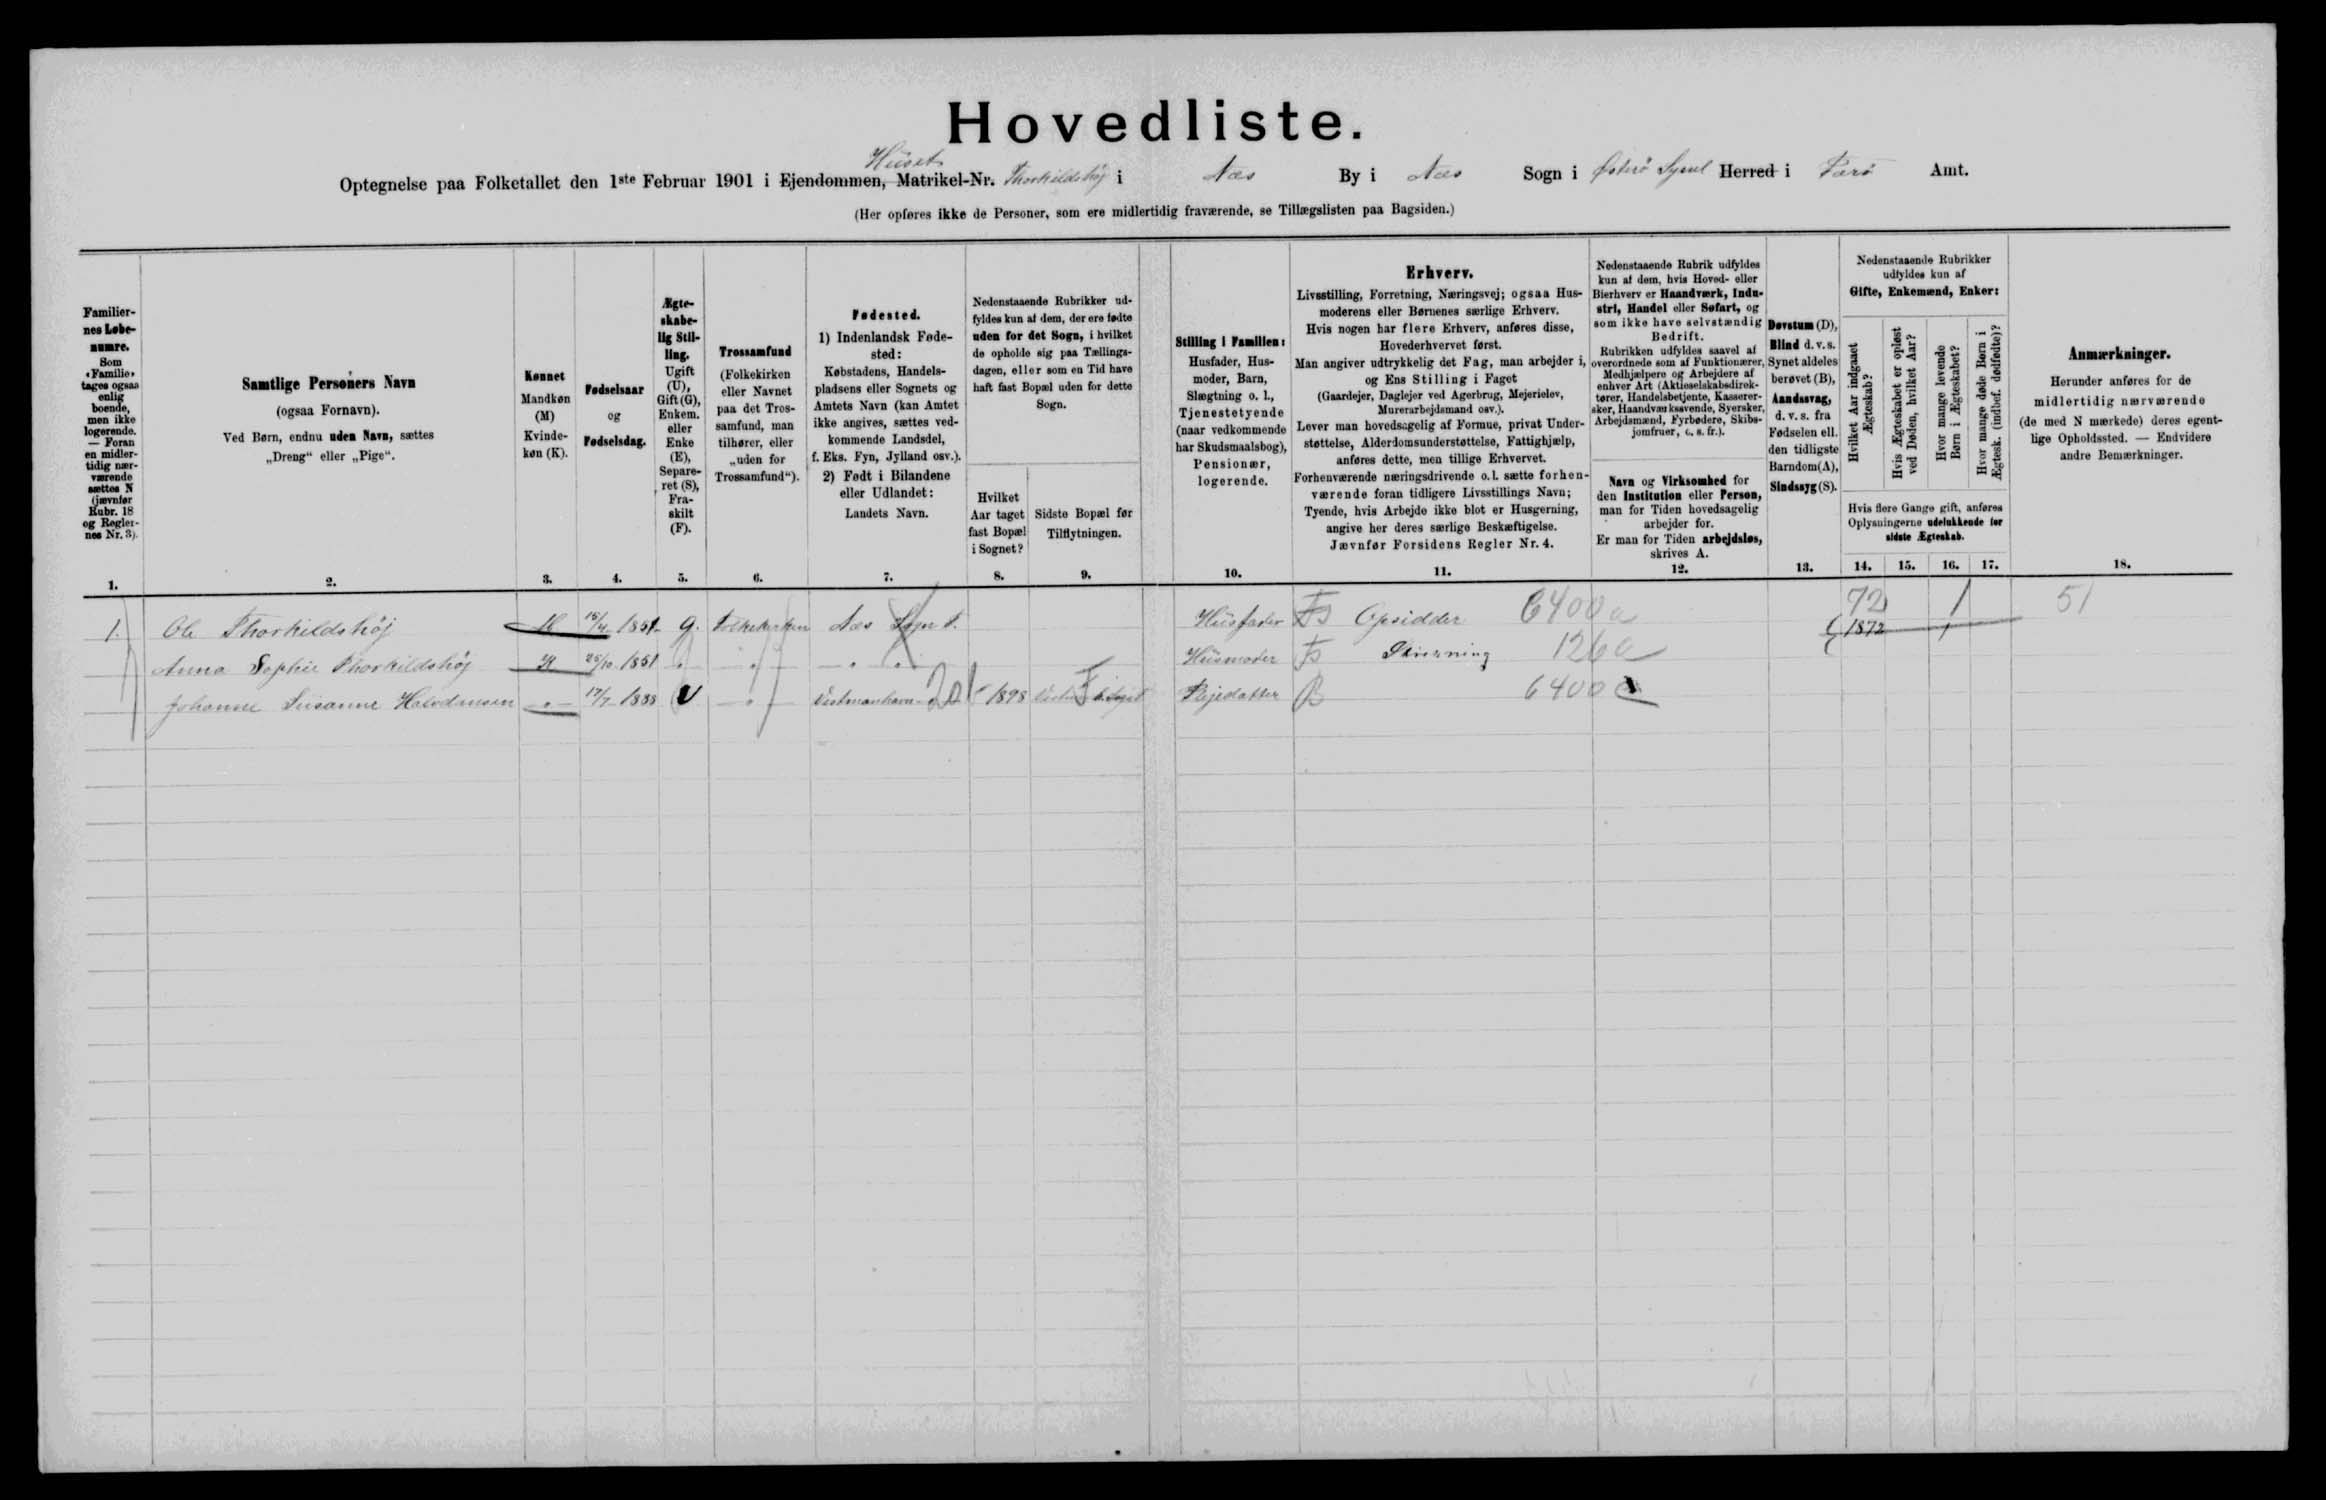 Hovedliste.
Huset
Optegnelse paa Folketallet den 1ste Februar 1901 i Ejendommen, Matrikel-Nr. Thorkildshöj i Næs By i Næs Sogn i Österö Syssel Herred i Færö Amt.
(Her opføres ikke de Personer, som ere midlertidig fraværende, se Tillægslisten paa Bagsiden.)
Familier-
nes Løbe-
numre.
Som
«Familie»
tages ogsaa
enlig
boende,
men ikke
logerende.
— Foran
en midler-
tidig nær-
værende
sættes N
(jævnfør
Rubr. 18
og Regler-
nes Nr. 3).
1.
Samtlige Personers Navn
(ogsaa Fornavn).
Ved Børn, endnu uden Navn, sættes
„Dreng“ eller „Pige“.
2.
Kønnet
Mandkøn
(M)
Kvinde-
køn (K).
3.
Fødselsaar
og
Fødselsdag.
4.
Ægte-
skabe-
lig Stil-
ling.
Ugift
(U),
Gift (G),
Enkem.
eller
Enke
(E),
Separe-
ret (S),
Fra-
skilt
(F).
5.
Trossamfund
(Folkekirken
eller Navnet
paa det Tros-
samfund, man
tilhører, eller
„uden for
Trossamfund“).
6.
Fødested.
1) Indenlandsk Føde-
sted:
Købstadens, Handels-
pladsens eller Sognets og
Amtets Navn (kan Amtet
ikke angives, sættes ved-
kommende Landsdel,
f. Eks. Fyn, Jylland osv.).
2) Født i Bilandene
eller Udlandet:
Landets Navn.
7.
Nedenstaaende Rubrikker ud-
fyldes kun af dem, der ere fødte
uden for det Sogn, i hvilket
de opholde sig paa Tællings-
dagen, eller som en Tid have
haft fast Bopæl uden for dette
Sogn.
Hvilket
Aar taget
fast Bopæl
i Sognet?
8.
Sidste Bopæl før
Tilflytningen.
9.
Stilling i Familien:
Husfader, Hus-
moder, Barn,
Slægtning o. l.,
Tjenestetyende
(naar vedkommende
har Skudsmaalsbog),
Pensionær,
logerende.
10.
Erhverv.
Livsstilling, Forretning, Næringsvej; ogsaa Hus-
moderens eller Børnenes særlige Erhverv.
Hvis nogen har flere Erhverv, anføres disse,
Hovederhvervet først.
Man angiver udtrykkelig det Fag, man arbejder i,
og Ens Stilling i Faget
(Gaardejer, Daglejer ved Agerbrug, Mejerielev,
Murerarbejdsmand osv.).
Lever man hovedsagelig af Formue, privat Under-
støttelse, Alderdomsunderstøttelse, Fattighjælp,
anføres dette, men tillige Erhvervet.
Forhenværende næringsdrivende o. l. sætte forhen-
værende foran tidligere Livsstillings Navn;
Tyende, hvis Arbejde ikke blot er Husgerning,
angive her deres særlige Beskæftigelse.
Jævnfør Forsidens Regler Nr. 4.
11.
Nedenstaaende Rubrik udfyldes
kun af dem, hvis Hoved- eller
Bierhverv er Haandværk, Indu-
stri, Handel eller Søfart, og
som ikke have selvstændig
Bedrift.
Rubrikken udfyldes saavel af
overordnede som af Funktionærer,
Medhjælpere og Arbejdere af
enhver Art (Aktieselskabsdirek-
tører, Handelsbetjente, Kasserer-
sker, Haandværkssvende, Syersker,
Arbejdsmænd, Fyrbødere, Skibs-
jomfruer, o. s. fr.).
Navn og Virksomhed for
den Institution eller Person,
man for Tiden hovedsagelig
arbejder for.
Er man for Tiden arbejdsløs,
skrives A.
12.
Døvstum (D),
Blind d. v. s.
Synet aldeles
berøvet (B),
Aandssvag,
d. v. s. fra
Fødselen ell.
den tidligste
Barndom (A),
Sindssyg (S).
13.
Nedenstaaende Rubrikker
udfyldes kun af
Gifte, Enkemænd, Enker:
Hvilket Aar indgaaet
Ægteskab?
Hvis Ægteskabet er opløst
ved Døden, hvilket Aar?
Hvor mange levende
Børn i Ægteskabet?
Hvor mange døde Børn i
Ægtesk. (indbef. dødfødte)?
Hvis flere Gange gift, anføres
Oplysningerne udelukkende for
sidste Ægteskab.
14. 15. 16. 17.
Anmærkninger.
Herunder anføres for de
midlertidig nærværende
(de med N mærkede) deres egent-
lige Opholdssted. — Endvidere
andre Bemærkninger.
18.
72 1 51
1. Ole Thorkildshöj M 1851 G. Folkekirken Næs Sogn Husfader Opsidder 6400 1872 1
Anna Sophie Thorkildshöj K 25/10 1851 Husmoder 126
Johanne Susanne Halvdansen 17/7 1888 U Vestmanhavn 1898 Plejedatter 6400